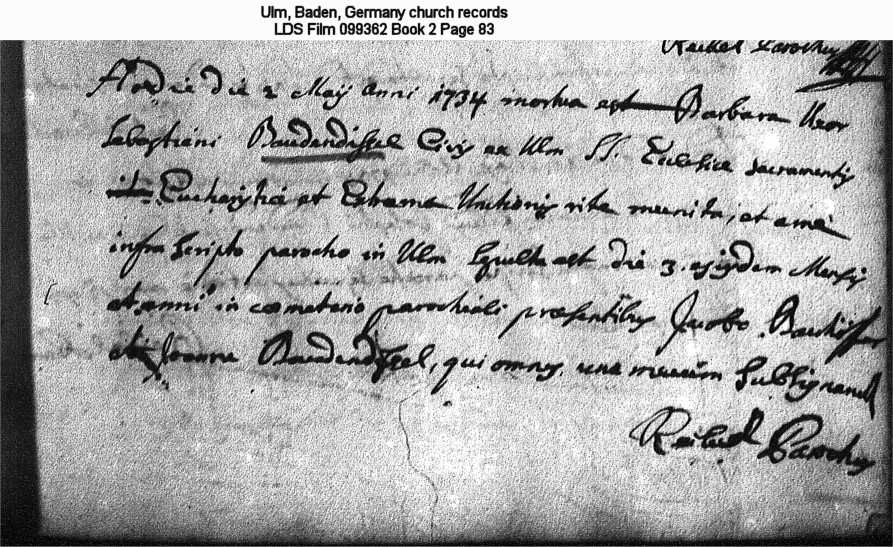 Ulm, Baden, Germany church records
LDS Film 099362 Book 2 Page 83
Parochus
Hodie die 2 Maij anni 1734 mortua est Barbara Uxor
Sebastiani Baudendistel Civis ex Ulm SS. Ecclesiae Sacramentis
Eucharistiae et Extremae Unctionis rite munita, et a me
infra scripto parocho in Ulm sepulta est die 3. ejusdem Mensis
et anni in coemeterio parochiali praesentibus Jacobo
et Joanne Baudendistel, qui omnes una mecum subsignarunt
Parochus